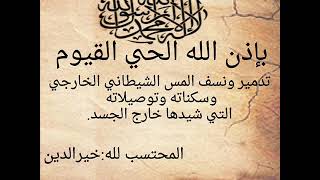 بإذن الله الحي القيوم
تدمير ونسف المس الشيطاني الخارجي
وسكناته وتوصيلاته
التي شيدها خارج الجسد.
المحتسب لله:خيرالدين